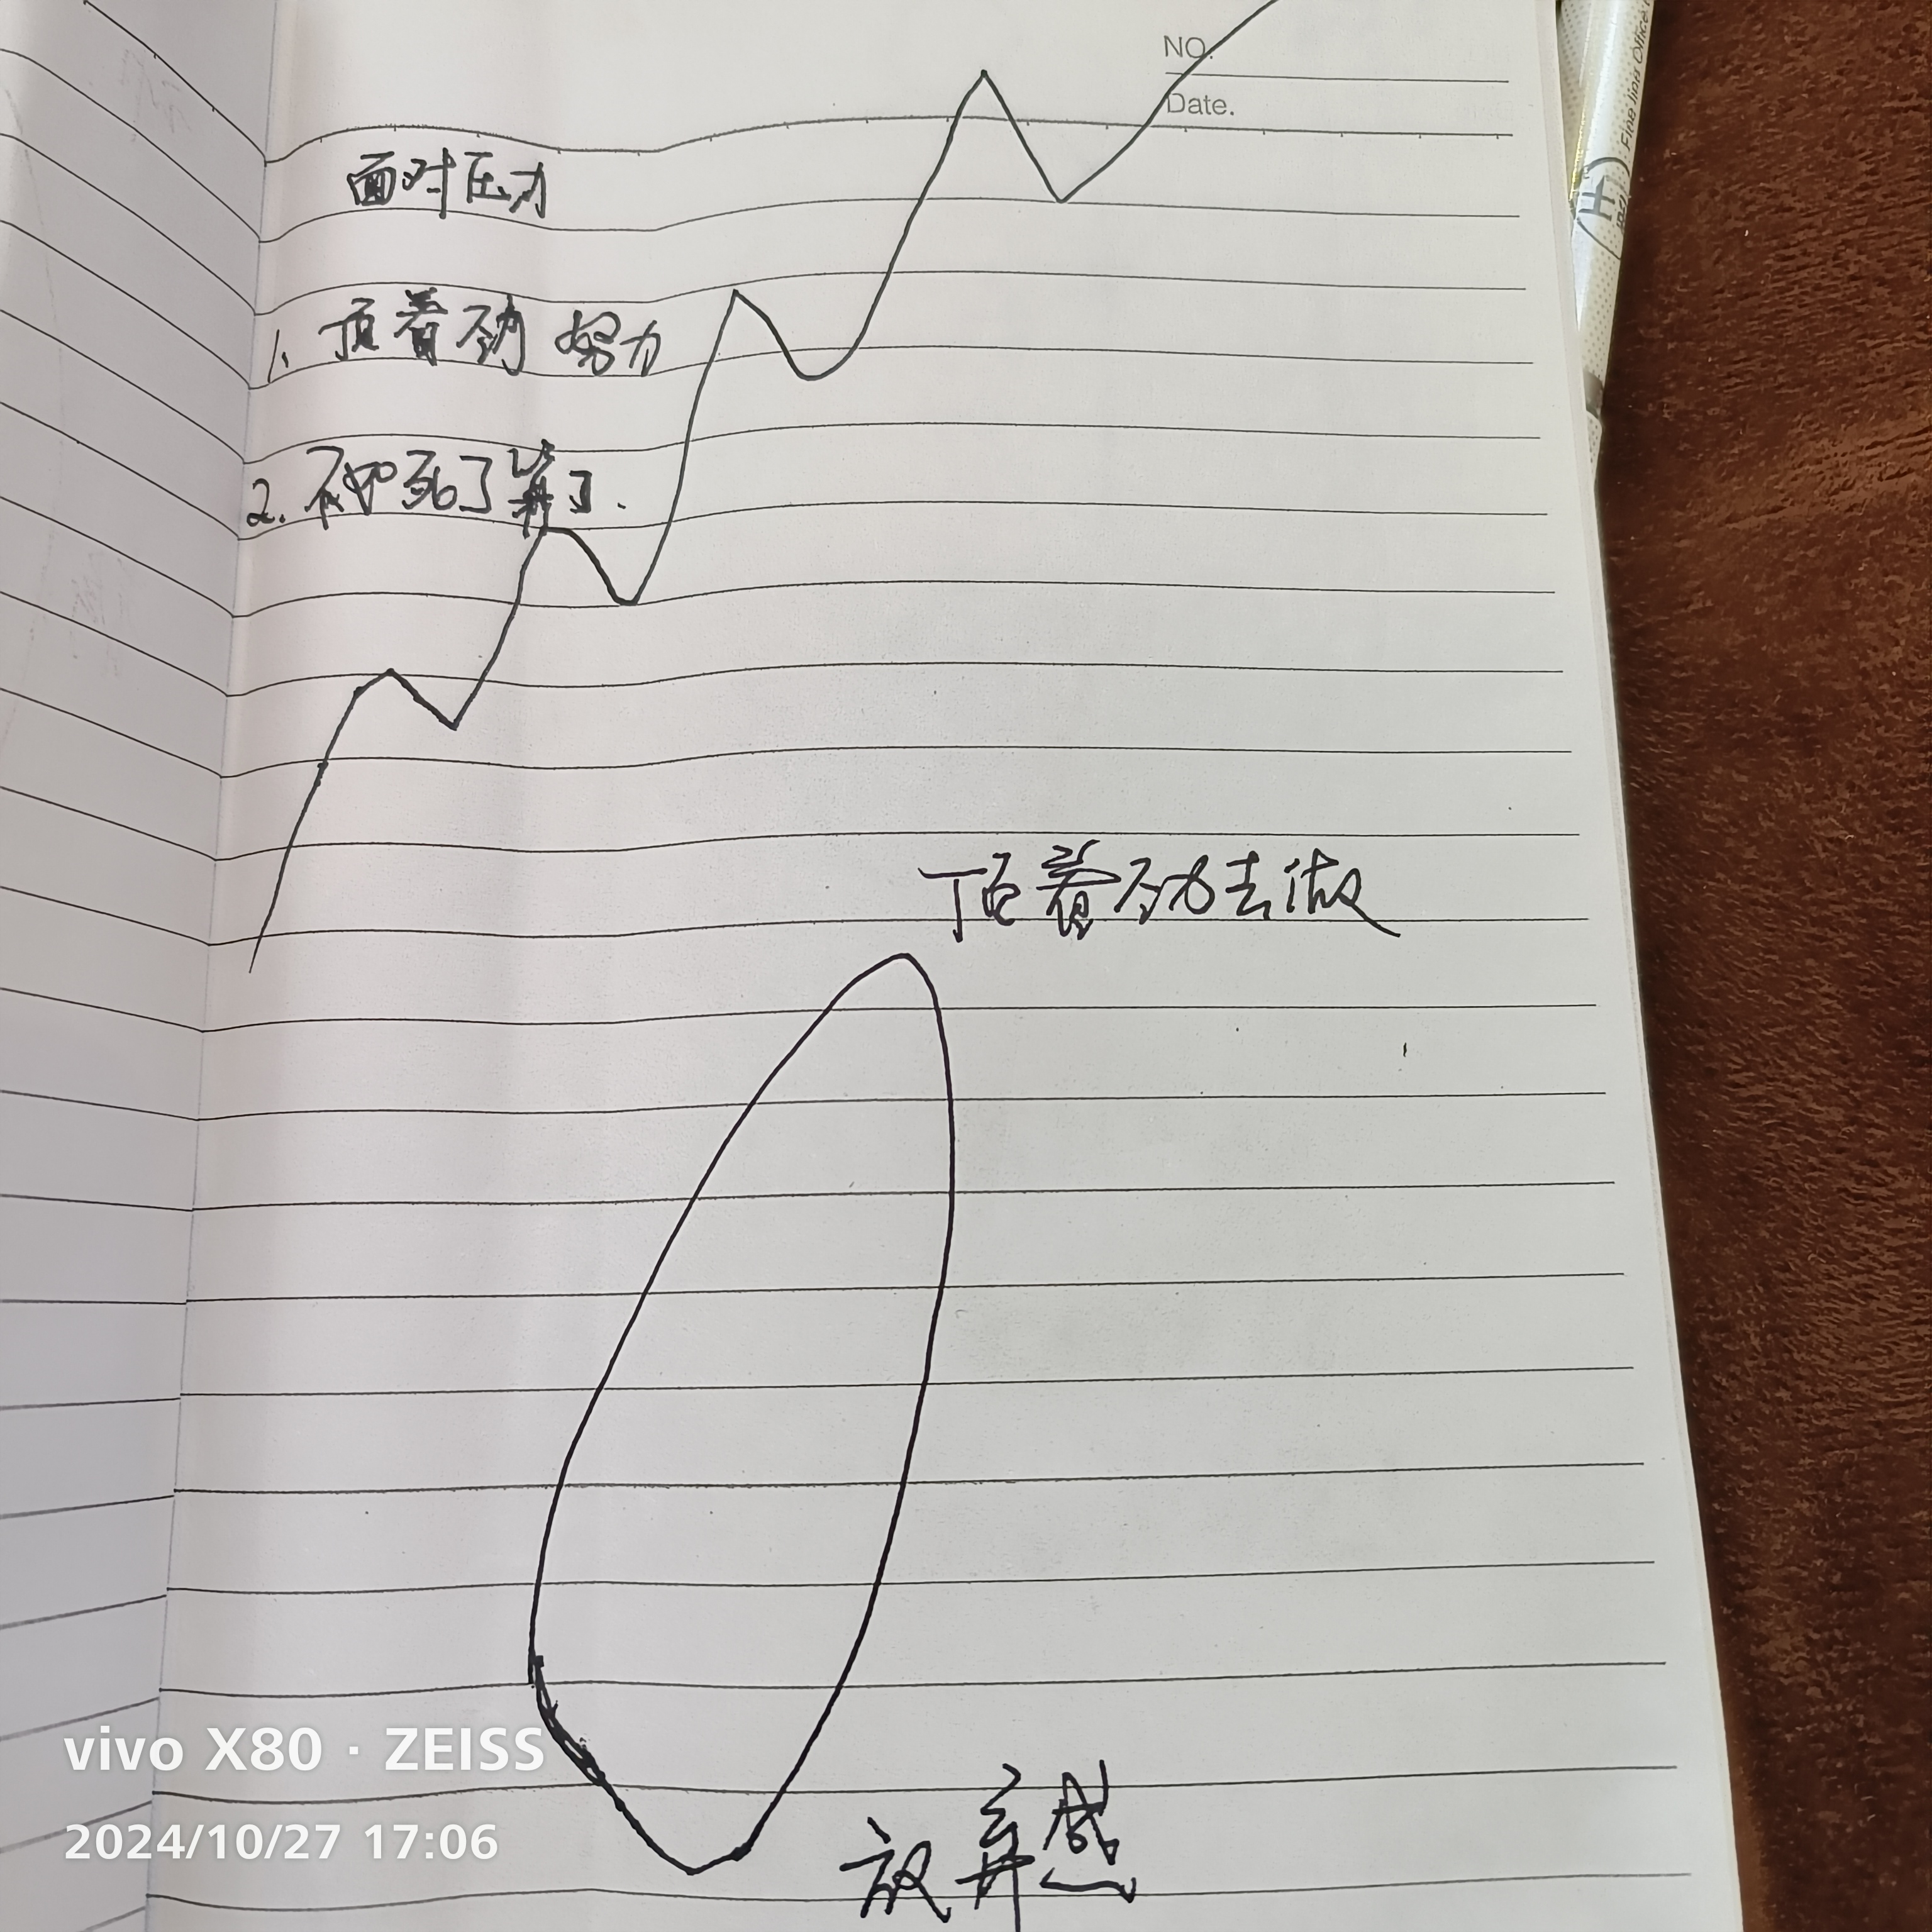 NO.
Date.
面对压力
1. 顶着 努力
2. 死了算了.
顶着 去做
放弃感
vivo X80 · ZEISS
2024/10/27 17:06